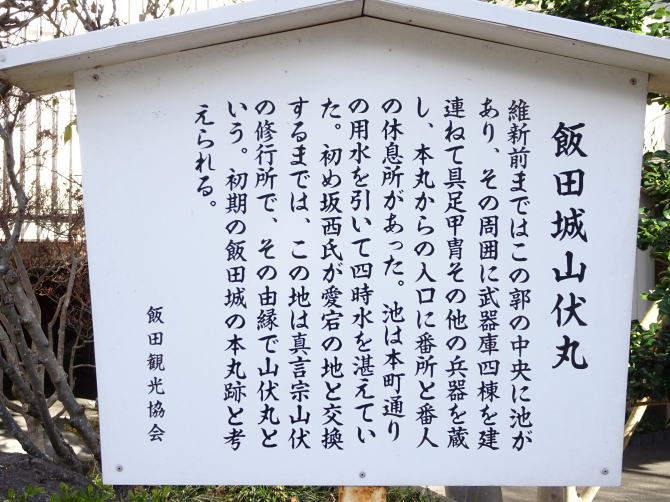 飯田城山伏丸
維新前まではこの郭の中央に池が
あり、その周囲に武器庫四棟を建
連ねて具足甲冑その他の兵器を蔵
し、本丸からの入口に番所と番人
の休息所があった。池は本町通り
の用水を引いて四時水を湛えてい
た。初め坂西氏が愛宕の地と交換
するまでは、この地は真言宗山伏
の修行所で、その由縁で山伏丸と
いう。初期の飯田城の本丸跡と考
えられる。
飯田観光協会